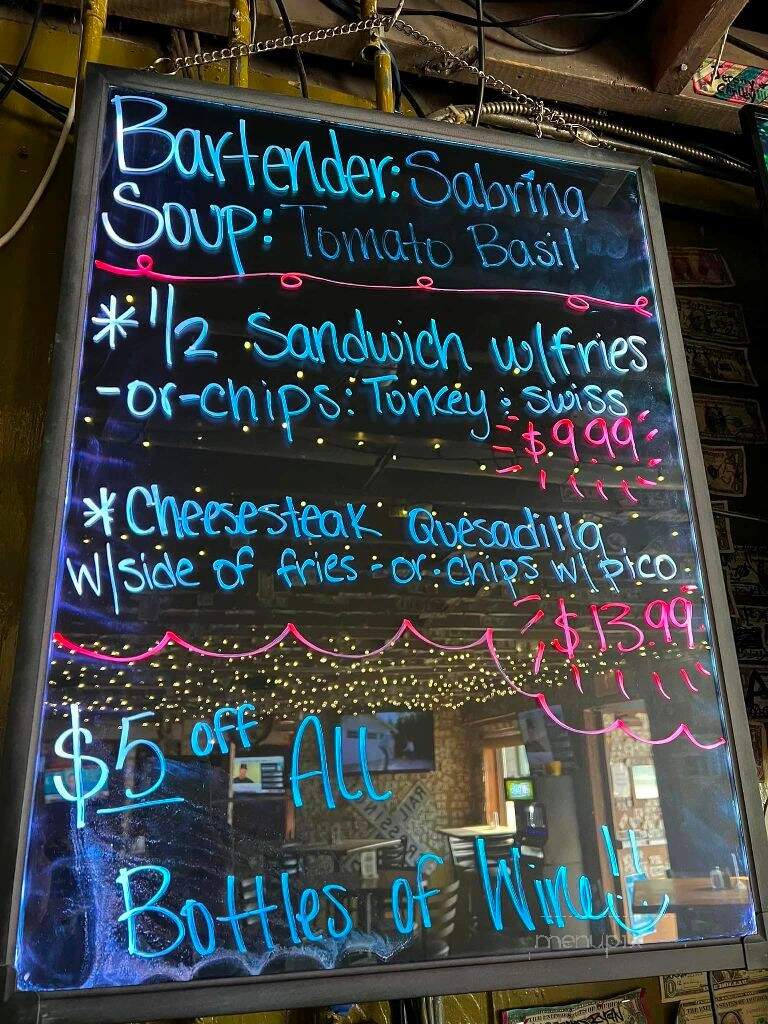 Bartender: Sabrina
Soup: Tomato Basil
*1/2 Sandwich w/fries
-or-chips: Turkey & swiss
$9.99
*Cheesesteak Quesadilla
w/side of fries-or-chips w/pico
$13.99
$5 off All
Bottles of Wine!!
menupix